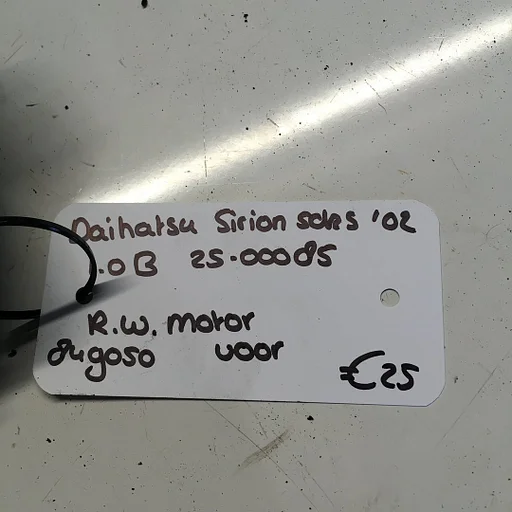 Daihatsu Sirion sdrs '02
.0 B 25.00085
R.W. motor
voor
€25